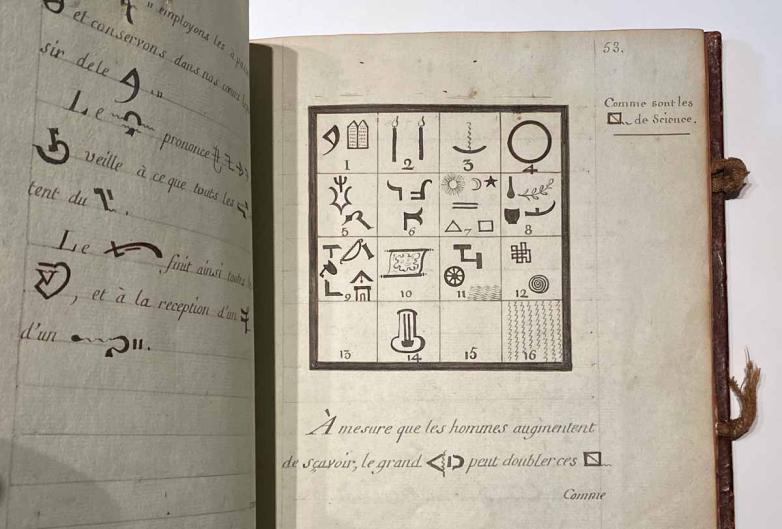 " employons les
et conservons dans nos
sir de le "
Le prononce
veille à ce que touts les
tent du .
Le finit ainsi
, et à la reception d'un
d'un ".
53.
Comme sont les
de Science.
1 2 3 4
5 6 7 8
9 10 11 12
13 14 15 16
À mesure que les hommes augmentent
de sçavoir, le grand peut doubler ces
Comme